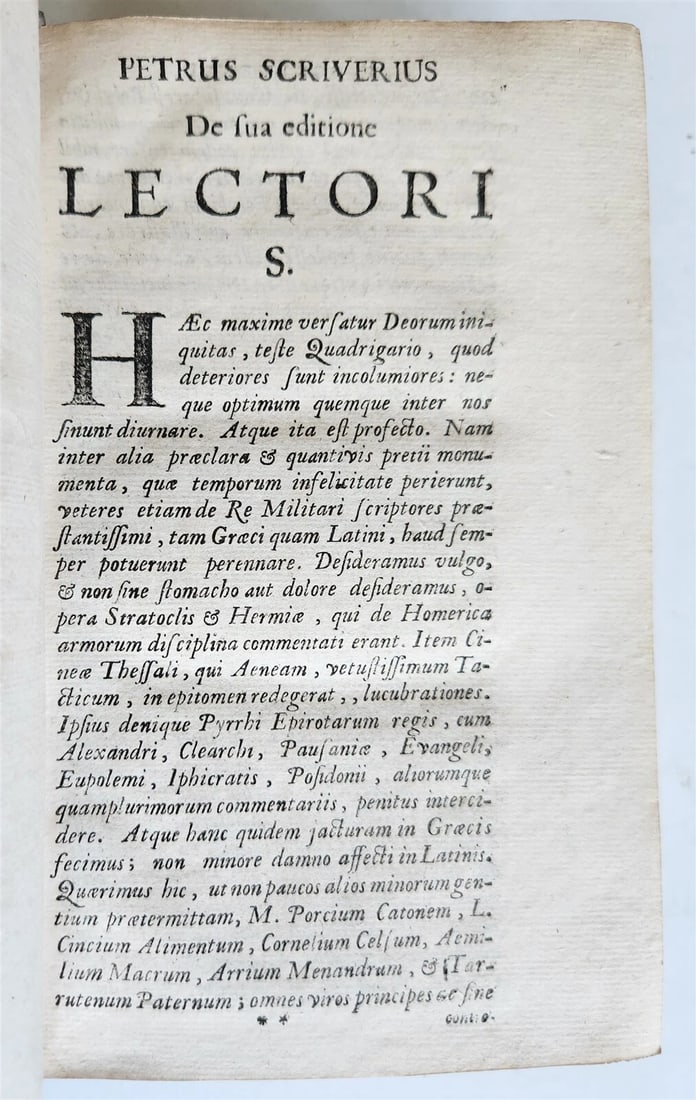 PETRUS SCRIVERIUS
De ſua editione
LECTORI
S.
HÆc maxime verſatur Deorum ini-
quitas, teſte Quadrigario, quod
deteriores ſunt incolumiores: ne-
que optimum quemque inter nos
ſinunt diurnare. Atque ita eſt profecto. Nam
inter alia præclara & quantivis pretii monu-
menta, quæ temporum infelicitate perierunt,
veteres etiam de Re Militari ſcriptores præ-
ſtantiſſimi, tam Græci quam Latini, haud ſem-
per potuerunt perennare. Deſideramus vulgo,
& non ſine ſtomacho aut dolore deſideramus, o-
pera Stratoclis & Hermiæ, qui de Homerica
armorum diſciplina commentati erant. Item Ci-
neæ Theſſali, qui Aeneam, vetuſtiſſimum Ta-
cticum, in epitomen redegerat,, lucubrationes.
Ipſius denique Pyrrhi Epirotarum regis, cum
Alexandri, Clearchi, Pauſaniæ, Evangeli,
Eupolemi, Iphicratis, Poſidonii, aliorumque
quamplurimorum commentariis, penitus interci-
dere. Atque hanc quidem jacturam in Græcis
fecimus; non minore damno affecti in Latinis.
Quærimus hic, ut non paucos alios minorum gen-
tium prætermittam, M. Porcium Catonem, L.
Cincium Alimentum, Cornelium Celſum, Aemi-
lium Macrum, Arrium Menandrum, & Tar-
rutenum Paternum; omnes viros principes ac ſine
* * contro-